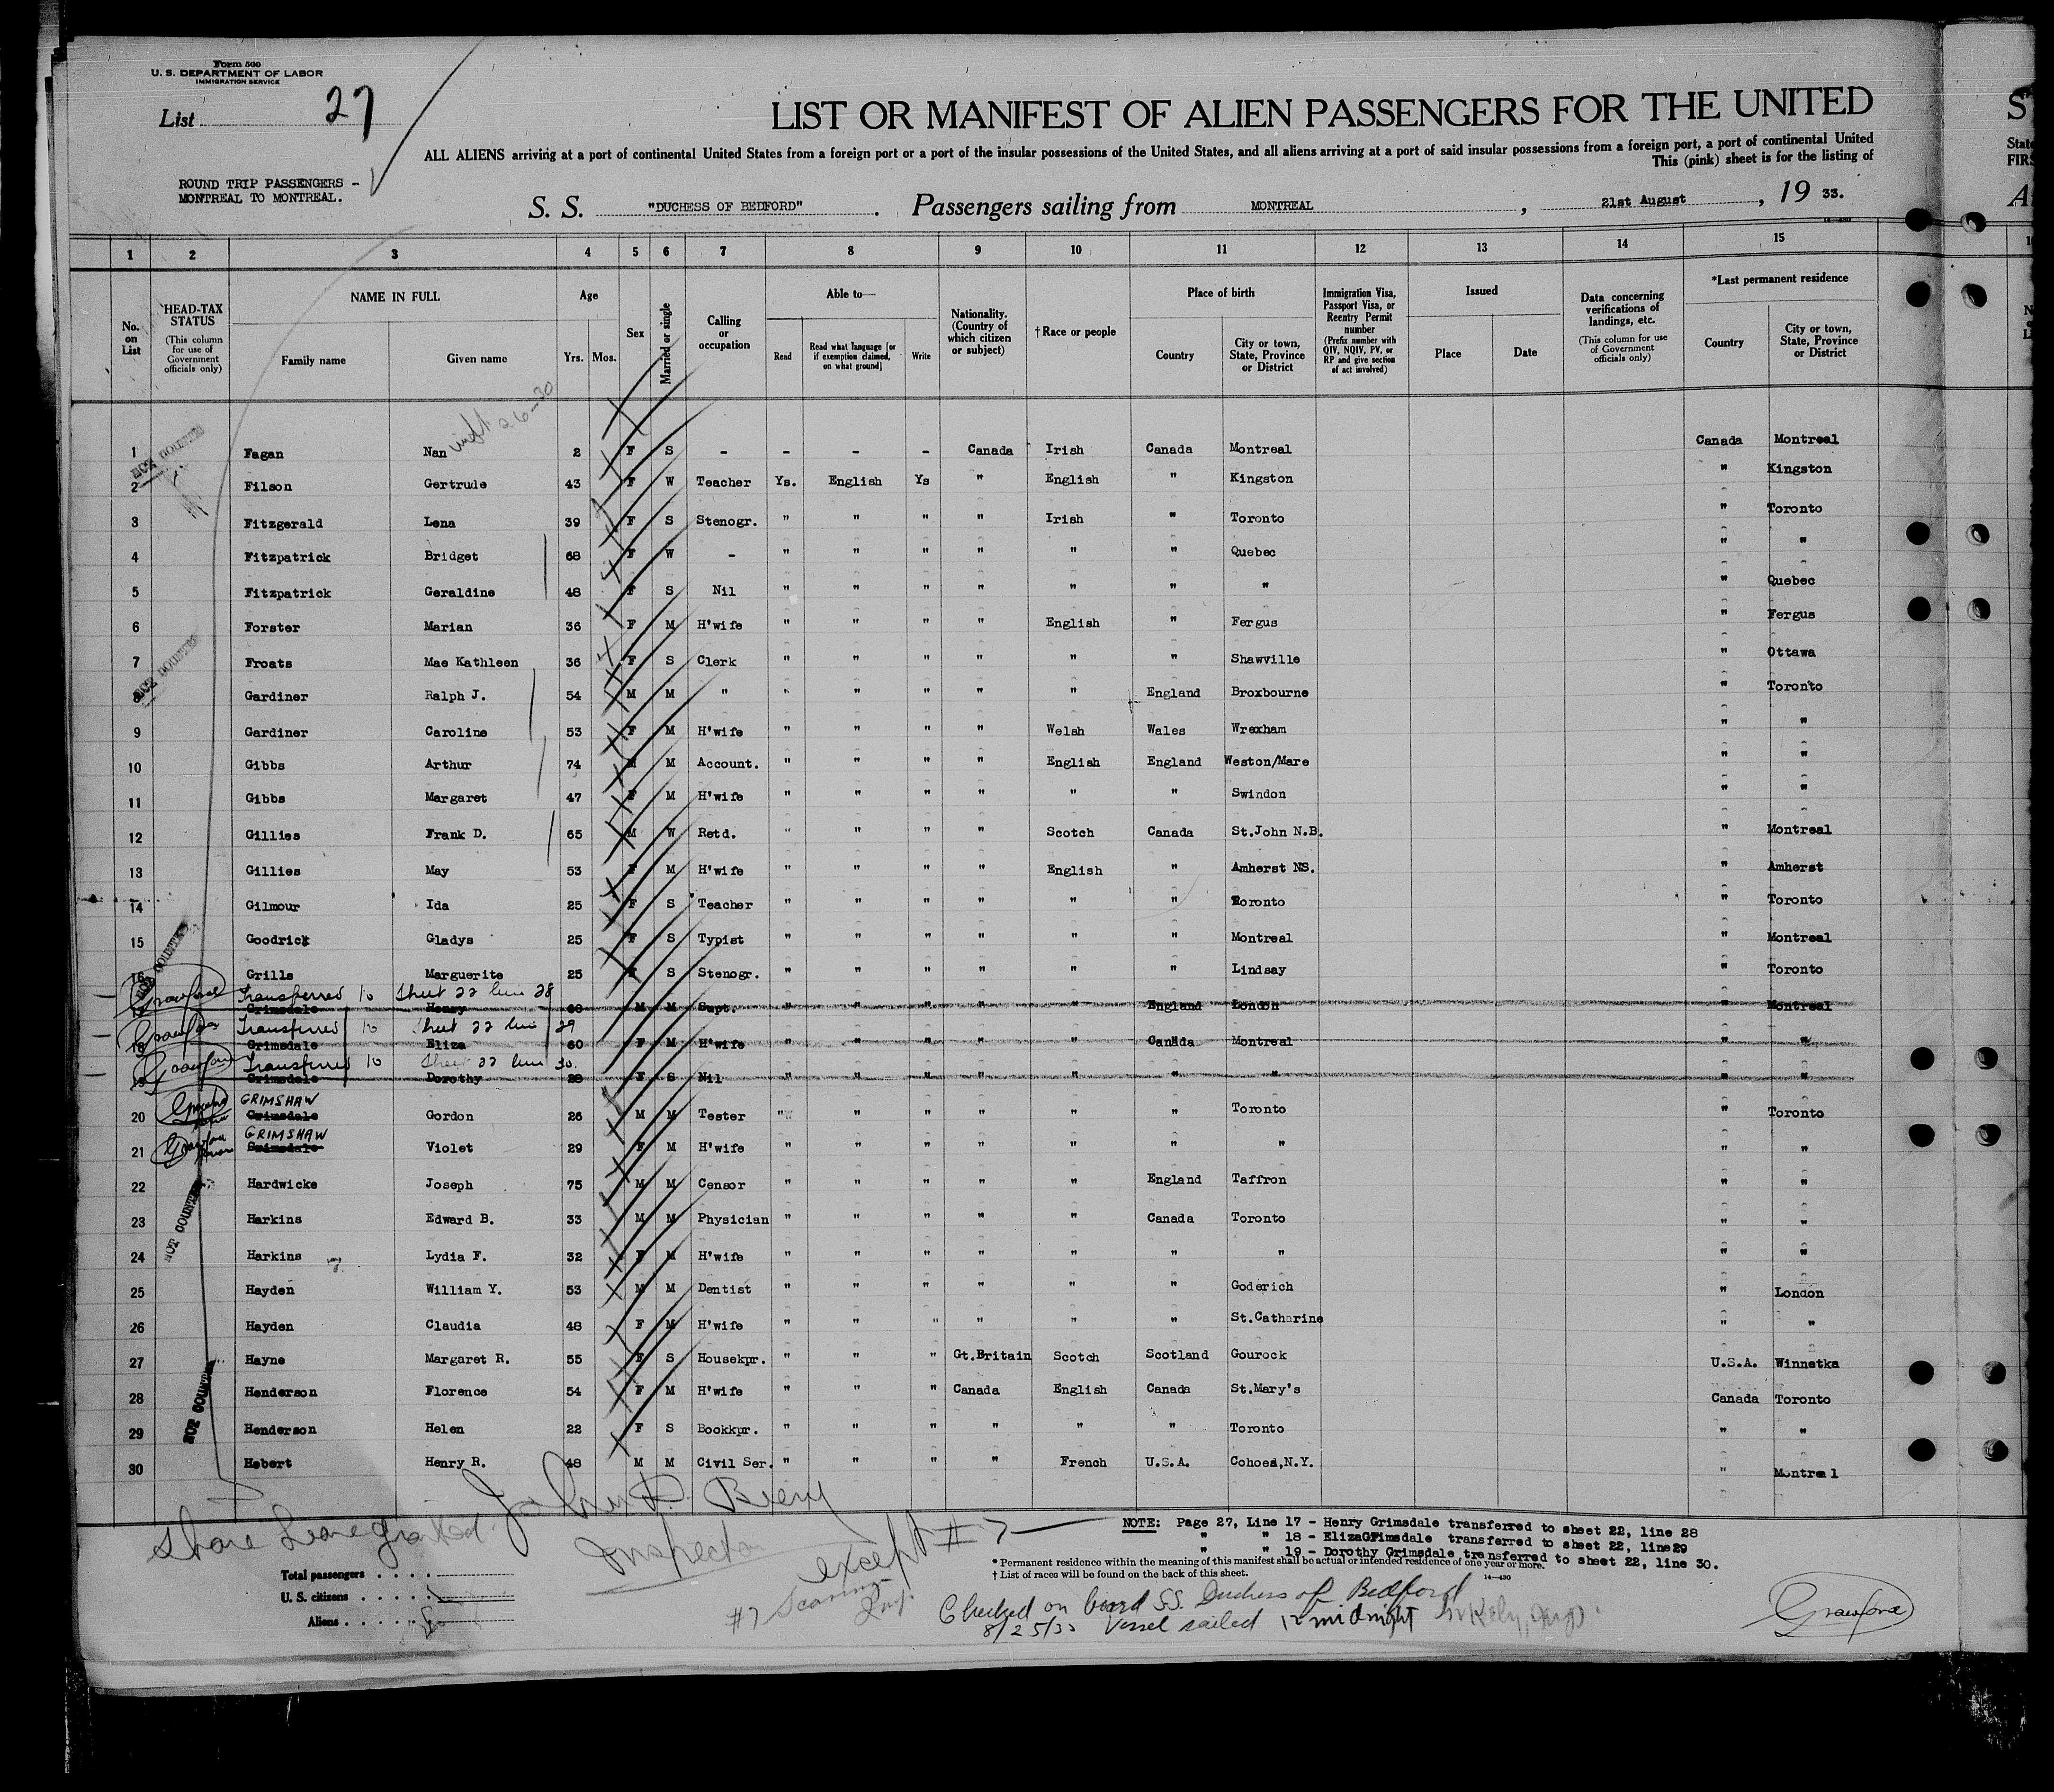 Form 500
U. S. DEPARTMENT OF LABOR
IMMIGRATION SERVICE
List 27
LIST OR MANIFEST OF ALIEN PASSENGERS FOR THE UNITED
ALL ALIENS arriving at a port of continental United States from a foreign port or a port of the insular possessions of the United States, and all aliens arriving at a port of said insular possessions from a foreign port, a port of continental United
This (pink) sheet is for the listing of
ROUND TRIP PASSENGERS -
MONTREAL TO MONTREAL.
S. S. "DUCHESS OF BEDFORD". Passengers sailing from MONTREAL, 21st August, 19 33.
1 2 3 4 5 6 7 8 9 10 11 12 13 14 15
No. on List
HEAD-TAX STATUS (This column for use of Government officials only)
NAME IN FULL Family name Given name
Age Yrs. Mos.
Sex
Married or single
Calling or occupation
Able to— Read Read what language [or if exemption claimed, on what ground] Write
Nationality. (Country of which citizen or subject)
†Race or people
Place of birth Country City or town, State, Province or District
Immigration Visa, Passport Visa, or Reentry Permit number (Prefix number with QIV, NQIV, PV, or RP and give section of act involved)
Issued Place Date
Data concerning verifications of landings, etc. (This column for use of Government officials only)
*Last permanent residence Country City or town, State, Province or District
1 Fagan Nan 2 F S - - - - Canada Irish Canada Montreal Canada Montreal
2 Filson Gertrude 43 F W Teacher Ys. English Ys " English " Kingston " Kingston
3 Fitzgerald Lena 39 F S Stenogr. " " " " Irish " Toronto " Toronto
4 Fitzpatrick Bridget 68 F W - " " " " " " Quebec " "
5 Fitzpatrick Geraldine 48 F S Nil " " " " " " " " Quebec
6 Forster Marian 36 F M H'wife " " " " English " Fergus " Fergus
7 Froats Mae Kathleen 36 F S Clerk " " " " " " Shawville " Ottawa
8 Gardiner Ralph J. 54 M M " " " " " " England Broxbourne " Toronto
9 Gardiner Caroline 53 F M H'wife " " " " Welsh Wales Wrexham " "
10 Gibbs Arthur 74 M M Account. " " " " English England Weston/Mare " "
11 Gibbs Margaret 47 F M H'wife " " " " " " Swindon " "
12 Gillies Frank D. 65 M W Retd. " " " " Scotch Canada St.John N.B. " Montreal
13 Gillies May 53 F M H'wife " " " " English " Amherst NS. " Amherst
14 Gilmour Ida 25 F S Teacher " " " " " " Toronto " Toronto
15 Goodrick Gladys 25 F S Typist " " " " " " Montreal " Montreal
16 Grills Marguerite 25 F S Stenogr. " " " " " " Lindsay " Toronto
Crawford Transferred to Sheet 22 line 28
17 Grimsdale Henry 60 M M Supt. " " " " " England London " Montreal
Crawford Transferred to Sheet 22 line 29
18 Grimsdale Eliza 60 F M H'wife " " " " " Canada Montreal " "
Crawford Transferred to Sheet 22 line 30.
19 Grimsdale Dorothy 28 F S Nil " " " " " " " " "
GRIMSHAW
20 Grimsdale Gordon 26 M M Tester " " " " " " Toronto " Toronto
GRIMSHAW
21 Grimsdale Violet 29 F M H'wife " " " " " " " " "
22 Hardwicke Joseph 75 M M Censor " " " " " England Taffron " "
23 Harkins Edward B. 33 M M Physician " " " " " Canada Toronto " "
24 Harkins Lydia F. 32 F M H'wife " " " " " " " " "
25 Hayden William Y. 53 M M Dentist " " " " " " Goderich " London
26 Hayden Claudia 48 F M H'wife " " " " " " St.Catharine " "
27 Hayne Margaret R. 55 F S Housekpr. " " " Gt.Britain Scotch Scotland Gourock U.S.A. Winnetka
28 Henderson Florence 54 F M H'wife " " " Canada English Canada St.Mary's Canada Toronto
29 Henderson Helen 22 F S Bookkpr. " " " " " " Toronto " "
30 Hebert Henry R. 48 M M Civil Ser. " " " " French U.S.A. Cohoes,N.Y. " Montreal
NOT COUNTED
NOT COUNTED
NOT COUNTED
NOT COUNTED
NOT COUNTED
Shore Leave granted
Inspector
except #7
NOTE: Page 27, Line 17 - Henry Grimsdale transferred to sheet 22, line 28
" " 18 - Eliza Grimsdale transferred to sheet 22, line29
" " 19 - Dorothy Grimsdale transferred to sheet 22, line 30.
* Permanent residence within the meaning of this manifest shall be actual or intended residence of one year or more.
† List of races will be found on the back of this sheet.
14—430
Total passengers
U. S. citizens
Aliens
#7
Checked on board SS. Duchess of Bedford
8/25/33 Vessel sailed 12 midnight
Crawford